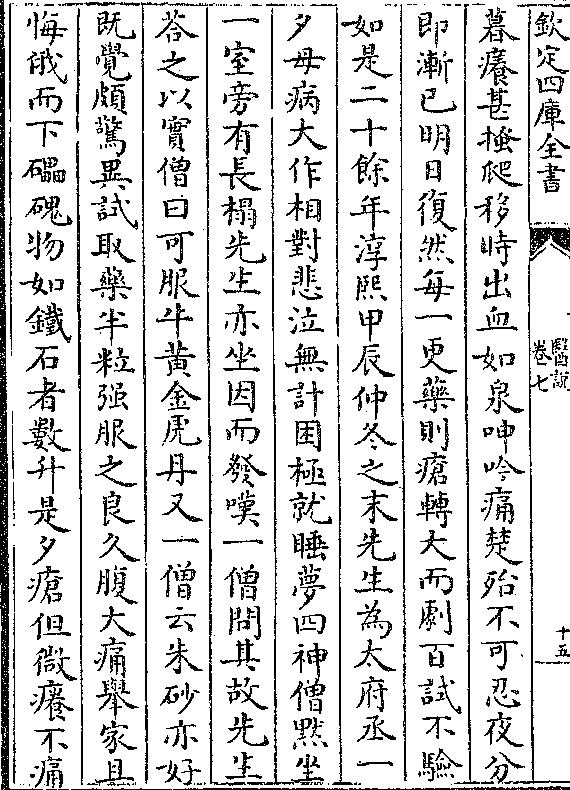 欽定四庫全書
醫說
卷七
十五
暮癢甚搔爬移時出血如泉呻吟痛楚殆不可忍夜分
即漸已明日復然每一更藥則瘡轉大而劇百試不驗
如是二十餘年淳熙甲辰仲冬之末先生為太府丞一
夕母病大作相對悲泣無計困極就睡夢四神僧默坐
一室旁有長榻先生亦坐因而發嘆一僧問其故先生
荅之以實僧曰可服牛黃金虎丹又一僧云朱砂亦好
既覺頗驚異試取藥半粒强服之良久腹大痛舉家且
悔俄而下礧磈物如鐵石者數升是夕瘡但微癢不痛